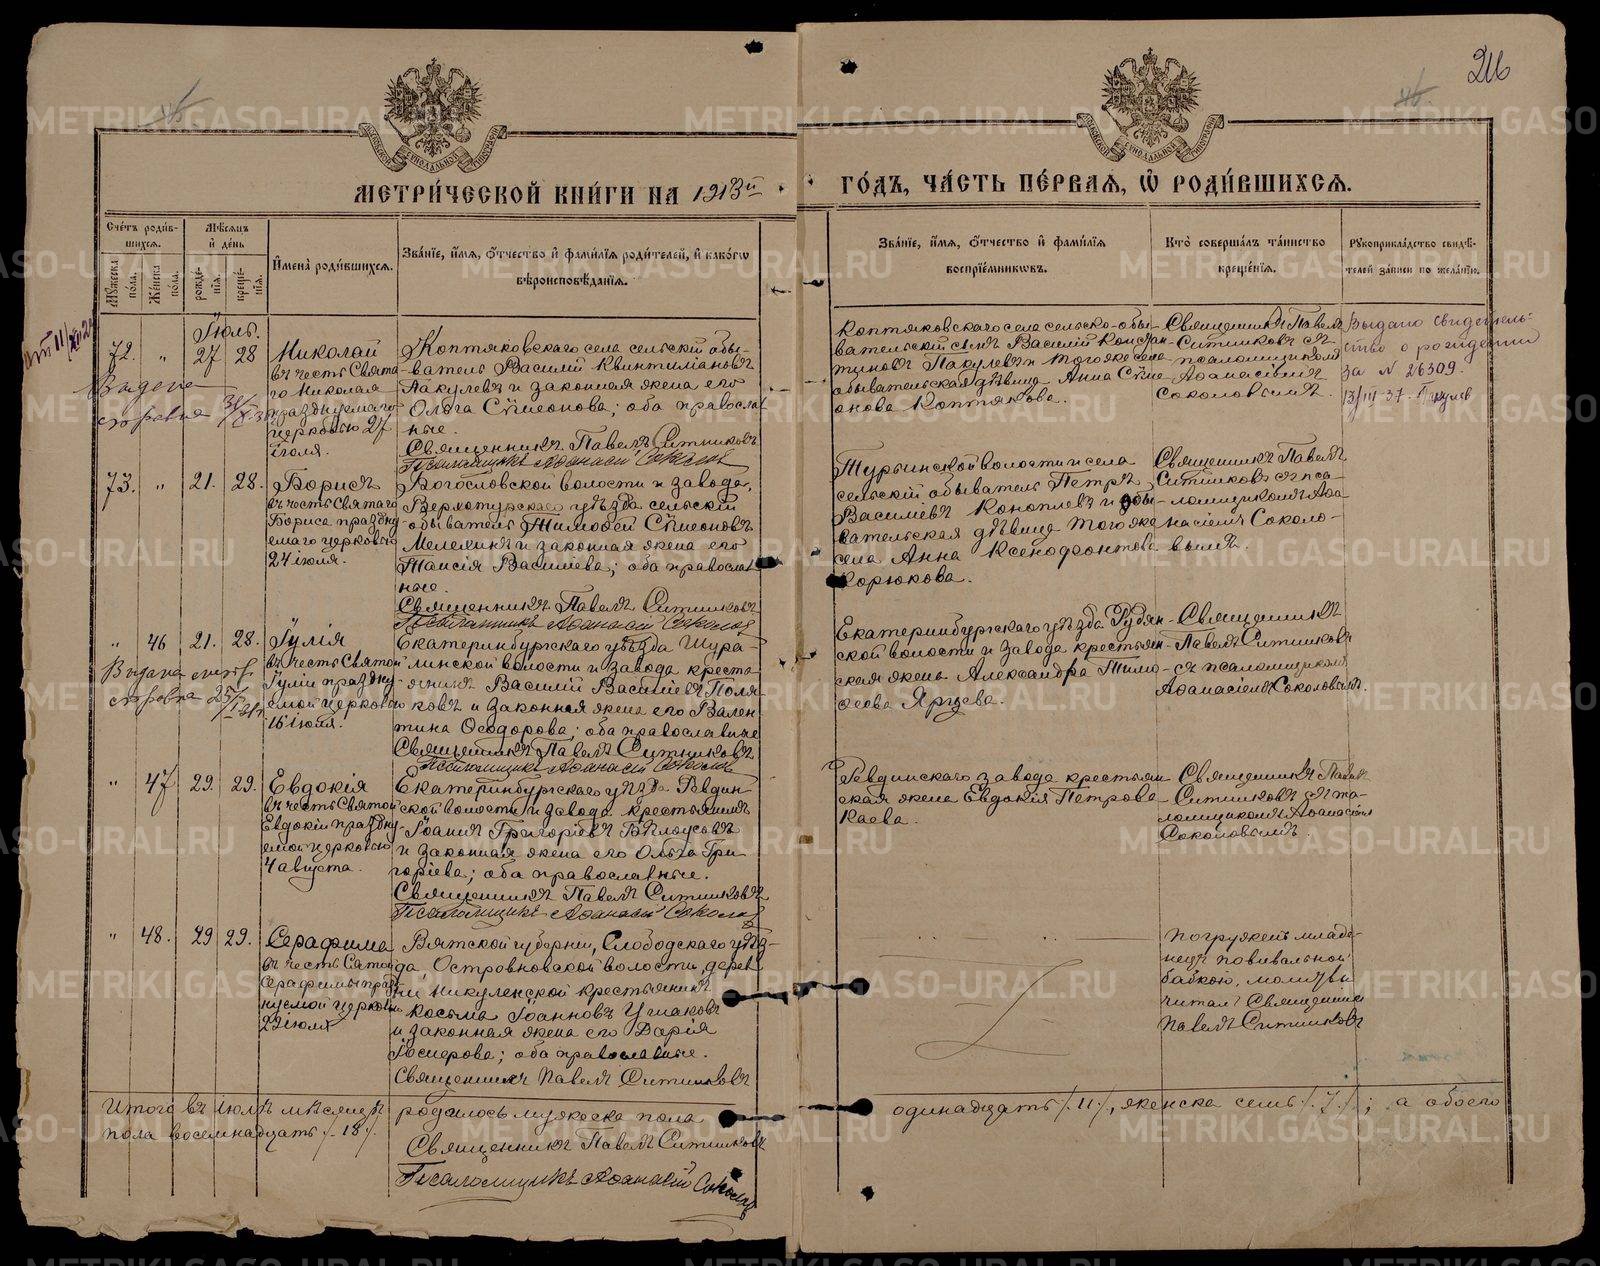 216
МЕТРИ́ЧЕСКОЙ КНИ́ГИ НА 1913й
ГО́ДЪ, ЧА́СТЬ ПЕ́РВАЯ, Ѽ РОДИ́ВШИХСЯ.
Сче́тъ роди́в-
шихся.
Мꙋ́жеска по́ла.
Же́нска по́ла.
Мѣ́сяцъ
и҆ де́нь
рожде́-
нїѧ.
креще́-
нїѧ.
И҆мена̀ роди́вшихсѧ.
Зва́нїе, и҆́мѧ, ѻ҆́тчество и҆ фами́лїѧ роди́телей, и҆ како́гѡ
вѣроисповѣ́данїѧ.
Зва́нїе, и҆́мѧ, ѻ҆́тчество и҆ фами́лїѧ
воспрїе́мникѡвъ.
Кто̀ соверша́лъ та́инство
креще́нїѧ.
Рꙋкоприкла́дство свидѣ́-
телей за́писи по жела́нїю.
Іюль.
72. " 27 28
Николай
въ честь Свята-
го Николая
празднуемаго
церковью 27
іюля.
Коптяковскаго села сельскій обы-
ватель Василій
Пакулевъ и законная жена его
Ольга Сѵмеонова; оба православ
ные.
Священникъ Павелъ Ситниковъ
Псаломщикъ Аѳанасій Соколовъ
Коптяковскаго села сельско-обы-
вательскій сынъ Василій Констан-
тиновъ Пакулевъ и того же села
обывательская дѣвица Анна Сѵме-
онова Коптякова.
Священникъ Павелъ
Ситниковъ съ
псаломщикомъ
Аѳанасіемъ
Соколовымъ.
Выдано свидетель-
ство о рождении
за N 26309.
13/III-37.
Выдана
справка
73. " 21. 28.
Борисъ
въ честь Святаго
Бориса праздну
емаго церковью
24 іюля.
Богословской волости и завода,
Верхотурскаго уѣзда сельскій
обыватель Тимоѳей Сѵмеоновъ
Мелехинъ и законная жена его
Таисія Васильева; оба православ
ные.
Священникъ Павелъ Ситниковъ
Псаломщикъ Аѳанасій Соколовъ
Турьинской волости и села
сельскій обыватель Петръ
Васильевъ Коноплевъ и обы-
вательская дѣвица того же
села Анна Ксенофонтова
Корюкова.
Священникъ Павелъ
Ситниковъ съ пса-
ломщикомъ Аѳа
насіемъ Соколо-
вымъ.
" 46 21. 28.
Іулія
въ честь Святой
Іуліи праздну-
емой церковью
16 іюля.
Екатеринбургскаго уѣзда Шура-
линской волости и завода кресть-
янинъ Василій Васильевъ Поля-
ковъ и законная жена его Вален
тина Ѳеодорова; оба православные
Священникъ Павелъ Ситниковъ
Псаломщикъ Аѳанасій Соколовъ
Екатеринбургскаго уѣзда Рудян-
ской волости и завода крестьян-
ская жена Александра Тимо-
ѳеева Ярцева.
Священникъ
Павелъ Ситниковъ
съ псаломщикомъ
Аѳанасіемъ Соколовымъ.
Выдана
справка
" 47 29. 29.
Евдокія
въ честь Святой
Евдокіи праздну-
емой церковью
4 августа.
Екатеринбургскаго уѣзда Ревдин-
ской волости и завода крестьянинъ
Іоаннъ Григорьевъ Бѣлоусовъ
и законная жена его Ольга Гри
горьева; оба православные.
Священникъ Павелъ Ситниковъ
Псаломщикъ Аѳанасій Соколовъ
Ревдинскаго завода крестьян
ская жена Евдокія Петрова
Каева.
Священникъ Павелъ
Ситниковъ съ пса-
ломщикомъ Аѳанасіемъ
Соколовымъ.
" 48. 29 29.
Серафима
въ честь Святой
Серафимы празд
нуемой церковью
29 іюля
Вятской губерніи, Слободскаго уѣз-
да, Островновской волости, дерев
ни Никуленской крестьянинъ
Косьма Іоанновъ Ушаковъ
и законная жена его Дарія
; оба православные.
Священникъ Павелъ Ситниковъ
погруженъ младе-
нецъ повивальной
бабкою, молитвы
читалъ Священникъ
Павелъ Ситниковъ
Итого въ іюлѣ мѣсяцѣ родилось мужеска пола одинадцать /.11./, женска семь /.7./; а обоего
пола восемнадцать /.18./.
Священникъ Павелъ Ситниковъ
Псаломщикъ Аѳанасій Соколовъ
METRIKI.GASO-URAL.RU